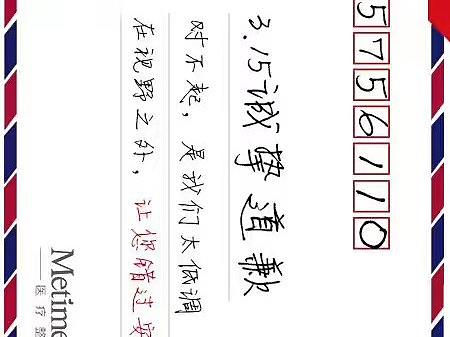 5756110
3.15诚挚道歉
对不起，是我们太低调
在视野之外，让您错过
Metime
医疗整